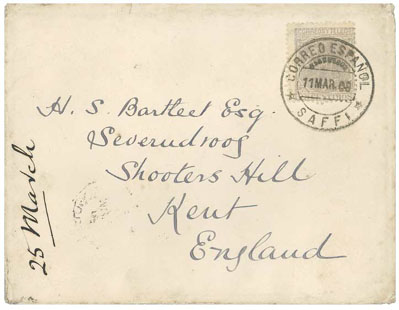 CORREO ESPAÑOL
11 MAR. 08
★ SAFFI ★
H. S. Bartleet Esq.
Severndroog
Shooters Hill
Kent
England
25 March